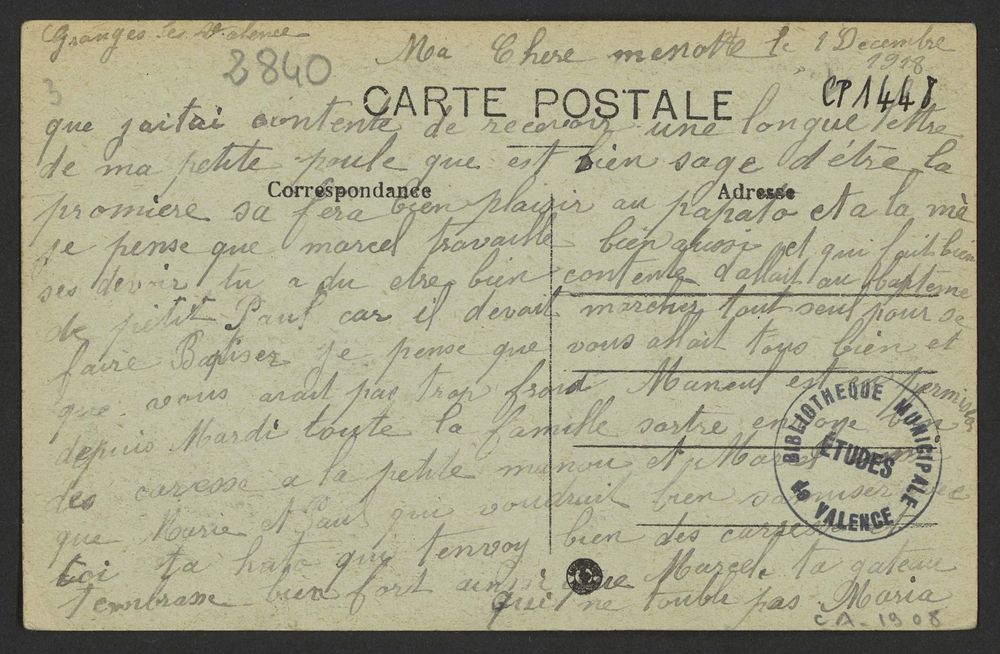 Granges les Valence
Ma Chere menotte le 1 Decembre
1918
2840
3
CARTE POSTALE
CP1448
que jaitai contente de recevoir une longue lettre
de ma petite poule que est bien sage d'étre la
Correspondance
Adresse
promiere sa fera bien plaisir au papato et a la mè
je pense que marcel travaille bien aussi et qui fait bien
ses devoir tu a du etre bien contente d'allait au Bapteme
de petit Paul car il devait marcher tout seul pour se
faire Baptiser je pense que vous allait tous bien et
que vous avait pas trop froid Maneul est permiser
depuis Mardi toute la famille sartre envoye bien
des caresse a la petite manou et Marcel
que Marie et Paul qui voudrait bien samuser avec
toi ta tata qui tenvoy bien des caresse et
tembrasse bien fort ainsi que Marcel ta gateau
qui ne toubli pas Maria
BIBLIOTHEQUE MUNICIPALE
ÉTUDES
de VALENCE
CA-1908